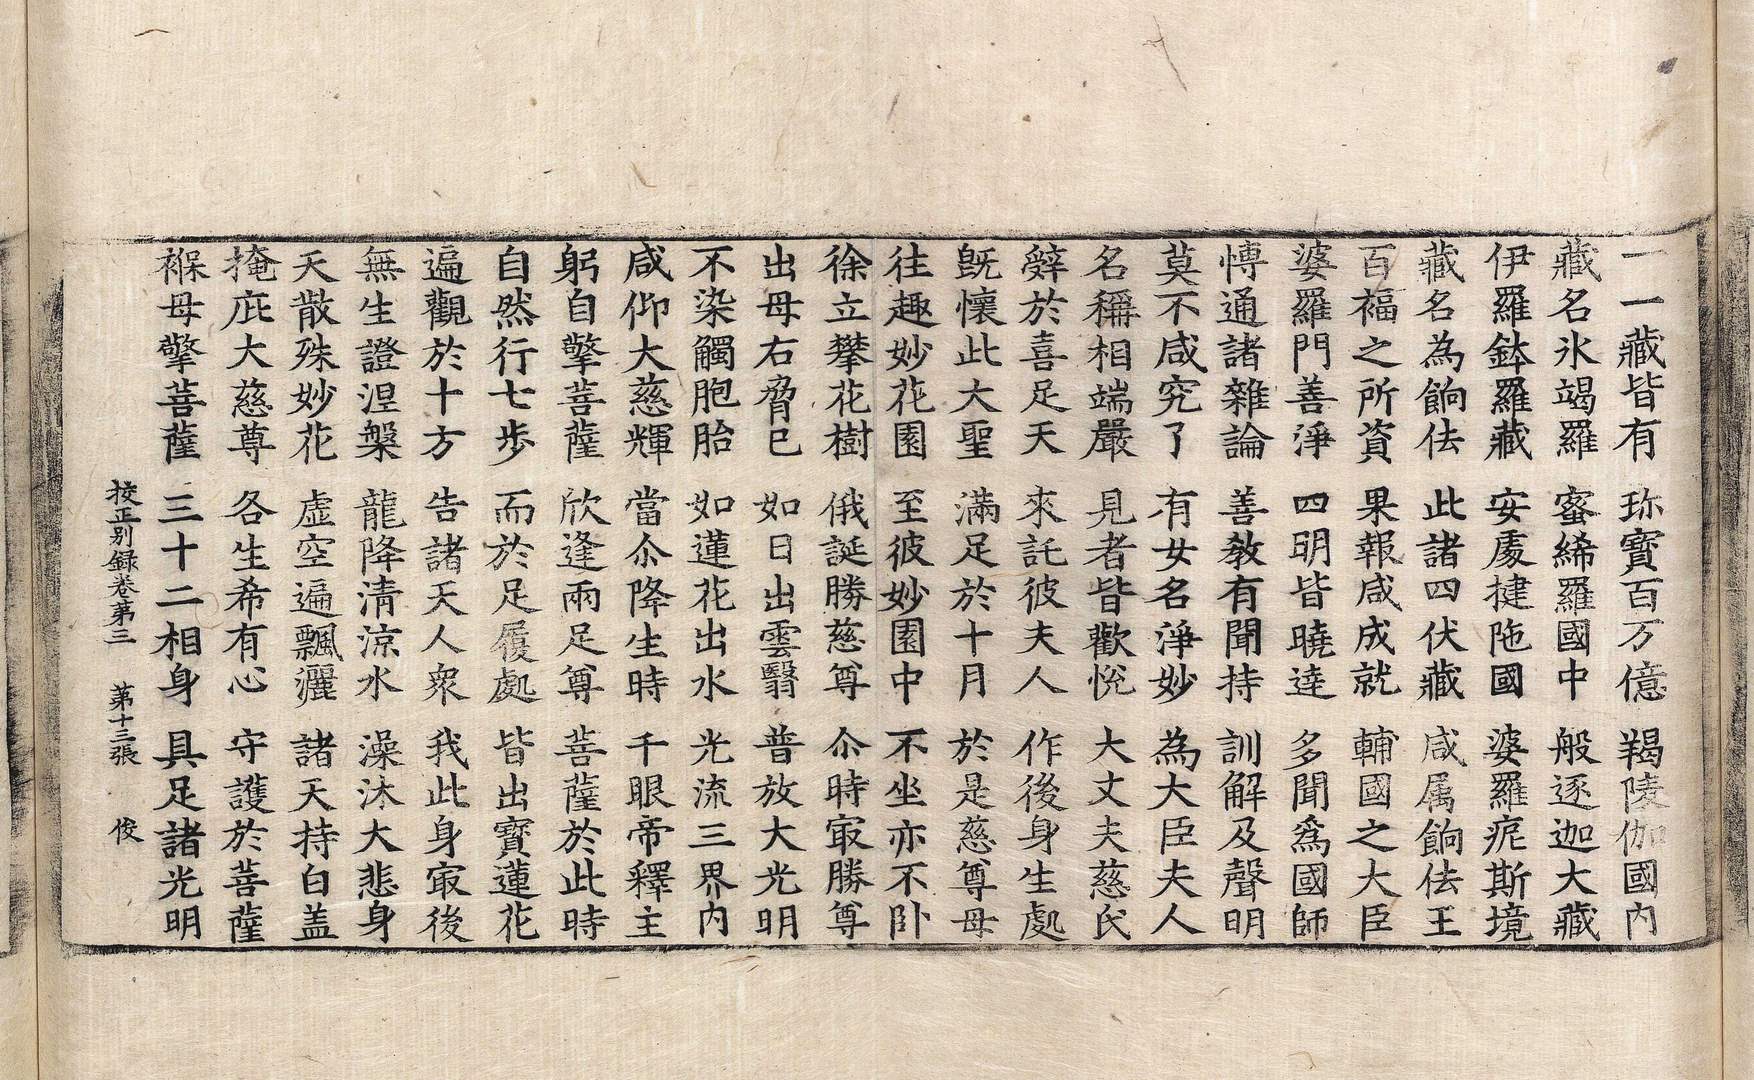 一一藏皆有　珎寶百万億　羯陵伽國內
藏名氷竭羅　蜜絺羅國中　般逐迦大藏
伊羅鉢羅藏　安處揵陁國　婆羅痆斯境
藏名為餉佉　此諸四伏藏　咸属餉佉王
百福之所資　果報咸成就　輔國之大臣
婆羅門善淨　四明皆曉達　多聞為國師
博通諸雜論　善教有聞持　訓解及聲明
莫不咸究了　有女名淨妙　為大臣夫人
名稱相端嚴　見者皆歡悅　大丈夫慈氏
辤於喜足天　來託彼夫人　作後身生處
旣懷此大聖　滿足於十月　於是慈尊母
往趣妙花園　至彼妙園中　不坐亦不卧
徐立攀花樹　俄誕勝慈尊　尒時㝡勝尊
出母右脅已　如日出雲翳　普放大光明
不染觸胞胎　如蓮花出水　光流三界內
咸仰大慈輝　當尒降生時　千眼帝釋主
躬自擎菩薩　欣逢兩足尊　菩薩於此時
自然行七步　而於足履處　皆出寶蓮花
遍觀於十方　告諸天人衆　我此身㝡後
無生證涅槃　龍降清涼水　澡沐大悲身
天散殊妙花　虛空遍飄灑　諸天持白盖
掩庇大慈尊　各生希有心　守護於菩薩
褓母擎菩薩　三十二相身　具足諸光明
挍正別録卷第三　第十三張　俊